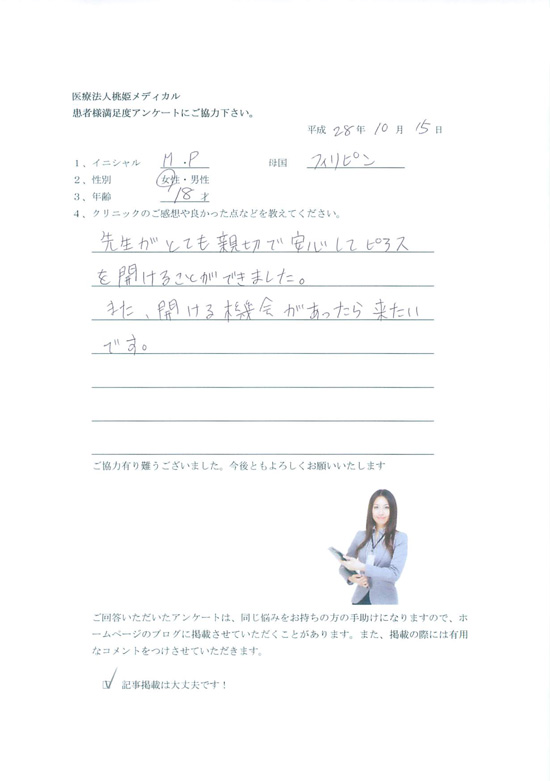 医療法人桃姫メディカル
患者様満足度アンケートにご協力下さい。
平成 28 年 10 月 15 日
1、イニシャル M.P 母国 フィリピン
2、性別 女性・男性
3、年齢 18 才
4、クリニックのご感想や良かった点などを教えてください。
先生がとても親切で安心してピアス
を開けることができました。
また、開ける機会があったら来たい
です。
ご協力有り難うございました。今後ともよろしくお願いいたします
ご回答いただいたアンケートは、同じ悩みをお持ちの方の手助けになりますので、ホ
ームページのブログに掲載させていただくことがあります。また、掲載の際には有用
なコメントをつけさせていただきます。
☑ 記事掲載は大丈夫です！